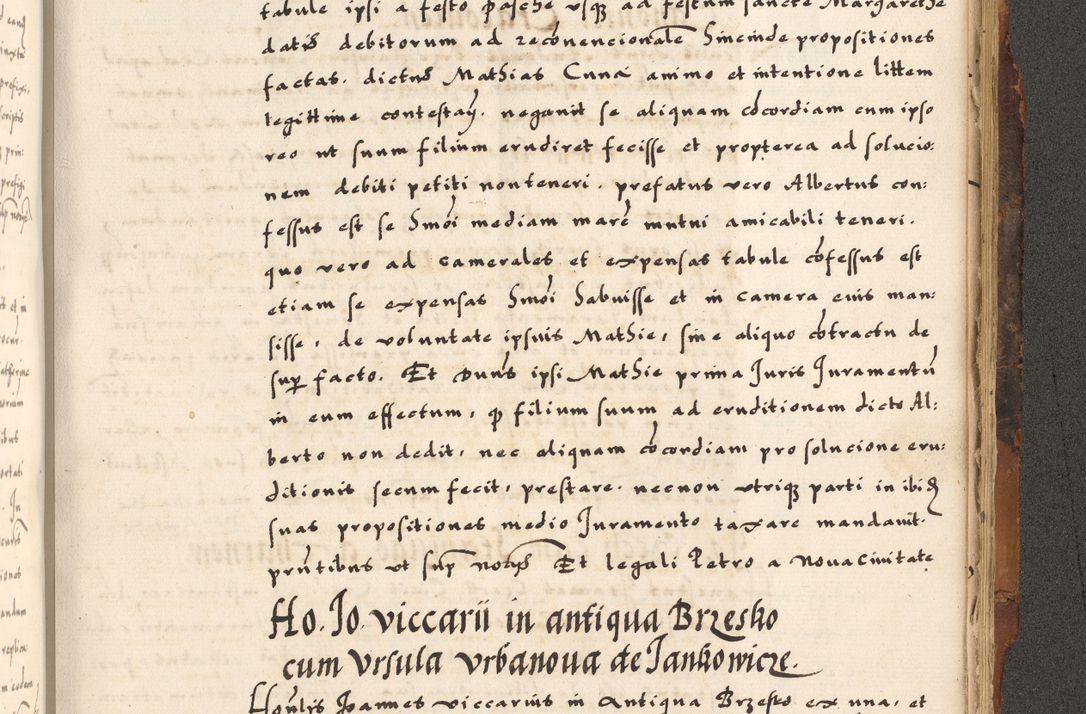 tabule ipsi a festo Pasche vsqꝫ ad festum sancte Margarethe
datis debitorum ad reconvencionale Sincinde propositiones
factas. dictus Mathias Cuna animo et intentione littem
legittime contestan. negavit se aliquam cōcordiam cum ipso
reo ut suum filium erudiret fecisse et propterea ad solucio:
nem debiti petiti non teneri. prefatus vero Albertus con:
fessus est se Smōi mediam marc̄ mutui amicabili teneri.
quo vero ad camerales et expensas tabule cōfessus est
etiam se expensas Smōi habuisse et in camera eius man:
sisse, de voluntate ipsius Mathie, sine aliquo cōtractu de
suꝑ facto. Et Dn̄s ipsi Mathie prima Juris Juramentū
in eum effectum, ꝙ filium suum ad eruditionem dicto Al:
berto non dedit, nec aliquam cōcordiam pro solucione eru:
ditionis secum fecit, prestare. necnon vtriqꝫ parti in ibidē
suas propositiones medio Juramento taxare mandavit.
prn̄tibus vt supꝛ noꝛijs Et legali Petro a Nova Civitate
Ho. Jo. viccarii in antiqua Brzesko
cum Vrsula Vrbanoua de Jankowicze.
Hon̄lis Joannes viccarius in Antiqua Brzesko ex una, et